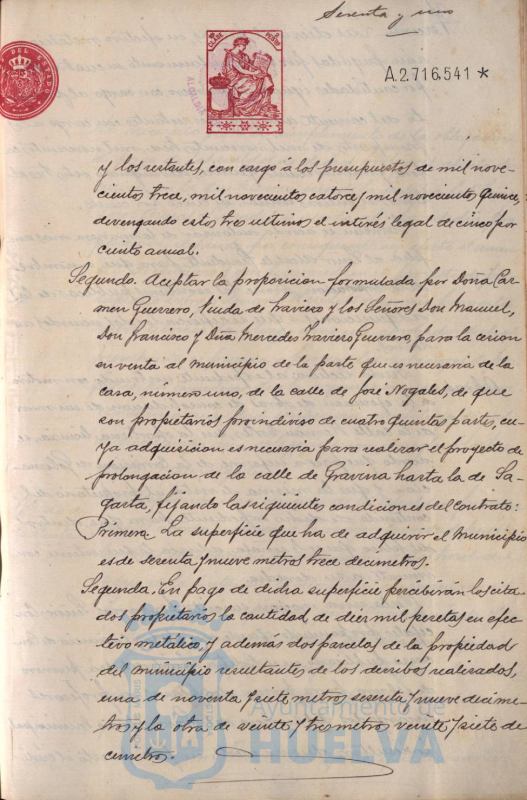 Sesenta y uno
A.2.716.541 *
DEL ESTADO
y los restantes, con cargo á los presupuestos de mil nove-
cientos trece, mil novecientos catorce y mil novecientos quince,
devengando estos tres ultimos el interés legal de cinco por
ciento anual.
Segundo. Aceptar la proposicion formulada por Doña Car-
men Guerrero, Viuda de Traviero y los Señores Don Manuel,
Don Francisco y Dña Mercedes Traviero Guerrero, para la cesion
en venta al municipio de la parte que es necesaria de la
casa, número uno, de la calle de José Nogales, de que
son propietarios proindiviso de cuatro quintas partes, cu-
ya adquisicion es necesaria para realizar el proyecto de
prolongacion de la calle de Gravina hasta la de Sa-
gasta, fijando las siguientes condiciones del contrato:
Primera. La superficie que ha de adquirir el Municipio
es de sesenta y nueve metros trece decimetros.
Segunda. En pago de dicha superficie percibirán los cita-
dos propietarios la cantidad de diez mil pesetas en efec-
tivo metálico, y además dos parcelas de la propiedad
del municipio resultantes de los derribos realizados,
una de noventa y siete metros sesenta y nueve decime-
tros y la otra de veinte y tres metros veinte y siete de-
cimetros.
Ayuntamiento de
HUELVA